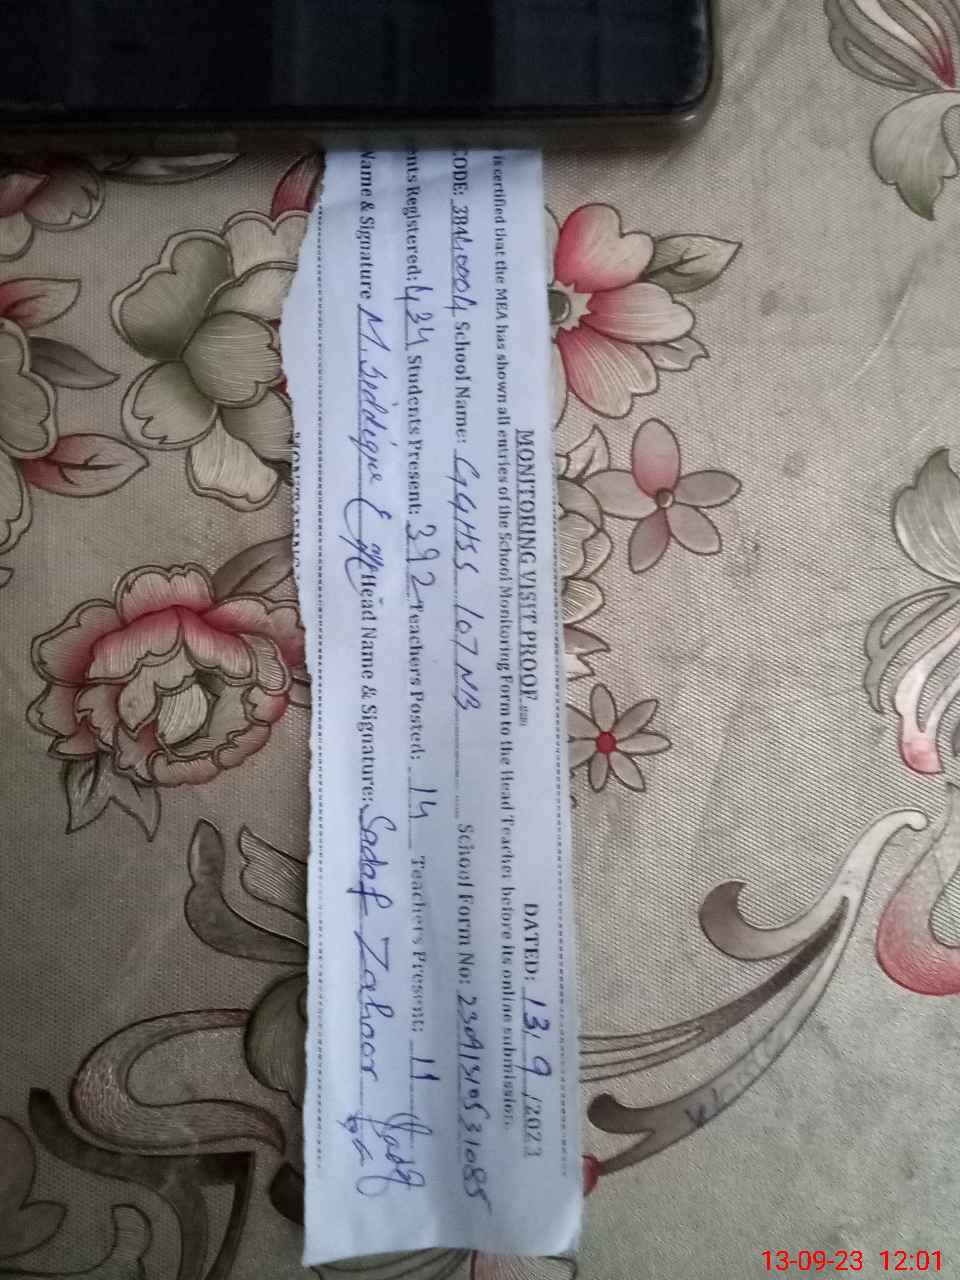 MONITORING VISIT PROOF DATED: 13/9/2023
is certified that the MEA has shown all entries of the School Monitoring Form to the Head Teacher before its online submission.
CODE: 38440004 School Name: GGHS 107 NB School Form No: 23091310531085
nts Registered: 434 Students Present: 392 Teachers Posted: 14 Teachers Present: 11
Name & Signature M. Siddique Head Name & Signature: Sadaf Zahoor
13-09-23 12:01